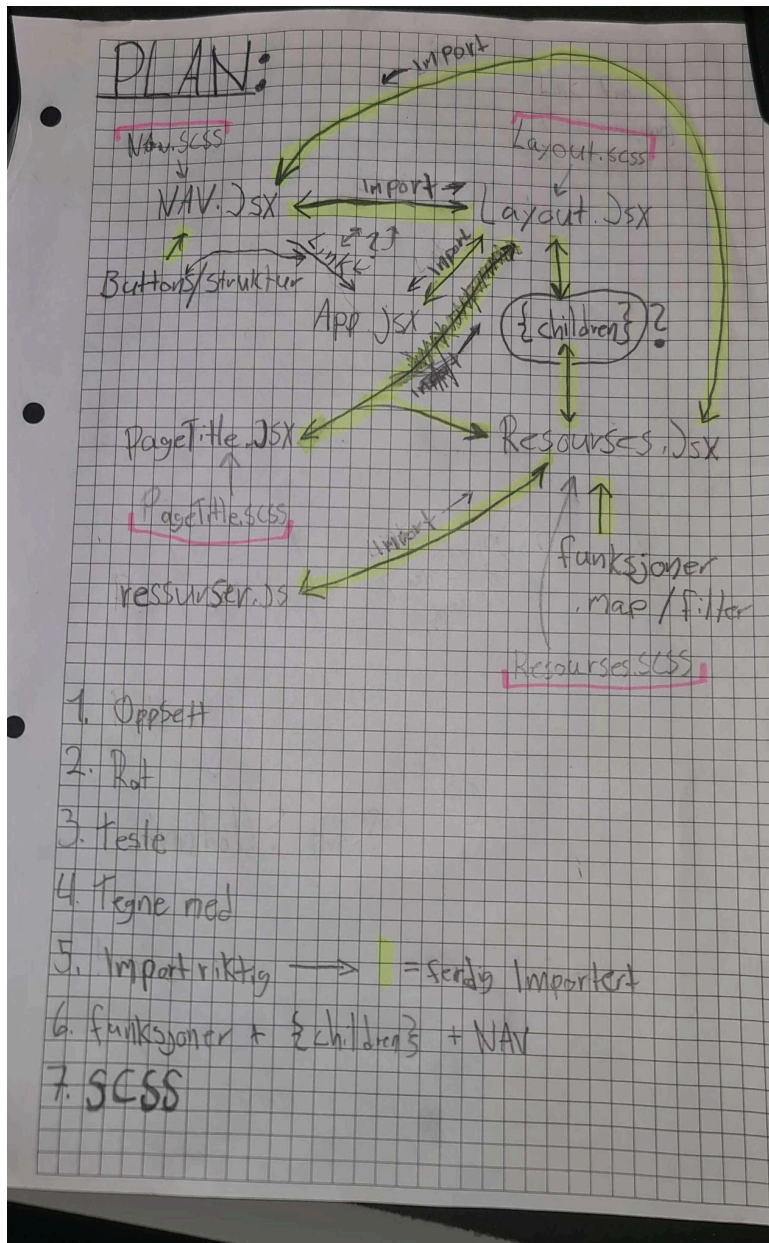 PLAN:
← Import
Nav.scss
Layout.scss
NAV.Jsx
Import →
Layout.Jsx
Buttons/struktur
Import
App.jsx
{children}?
PageTitle.Jsx
Resourses.Jsx
PageTitle.scss
Import →
ressurser.js
funksjoner
.map/filter
Resourses.SCSS
1. Oppsett
2. Rot
3. Teste
4. Tegne ned
5. Import riktig → = ferdig Importert
6. funksjoner + {children} + NAV
7. SCSS